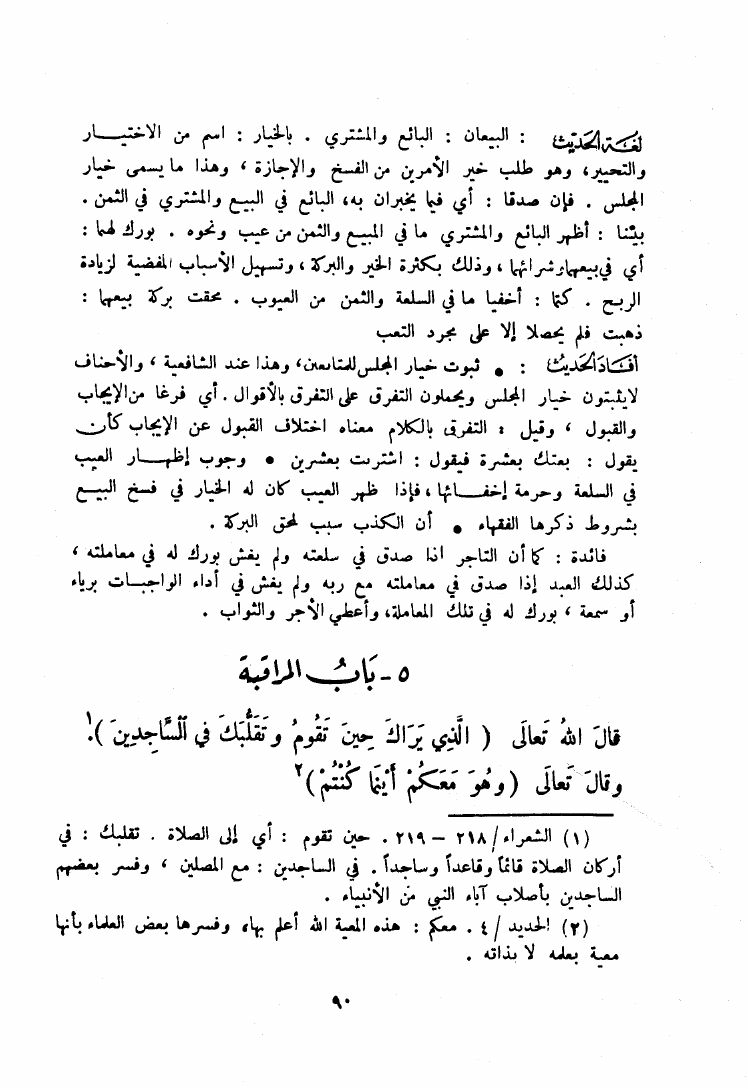 لغة الحديث : البيعان : البائع والمشتري . بالخيار : اسم من الاختيــار
والتحيير، وهو طلب خير الأمرين من الفسخ والإجازة ، وهذا ما يسمى خيار
المجلس . فإن صدقا : أي فيما يخبران به، البائع في البيع والمشتري في الثمن .
بيَّنا : أظهر البائع والمشتري ما في المبيع والثمن من عيب ونحوه . بورك لهما :
أي في بيعهما وشرائهما ، وذلك بكثرة الخير والبركة ، وتسهيل الأسباب المفضية لزيادة
الربح . كتما : أخفيا ما في السلعة والثمن من العيوب . محقت بركة بيعهما :
ذهبت فلم يحصلا إلا على مجرد التعب
أفاد الحديث : • ثبوت خيار المجلس للمتابعين، وهذا عند الشافعية ، والأحناف
لايثبتون خيار المجلس ويحملون التفرق على التفرق بالأقوال . أي فرغا من الإيجاب
والقبول ، وقيل : التفرق بالكلام معناه اختلاف القبول عن الإيجاب كأن
يقول : بعتك بعشرة فيقول : اشتريت بعشرين • وجوب إظهــار العيب
في السلعة وحرمة إخفــائها ، فإذا ظهر العيب كان له الخيار في فسخ البيــع
بشروط ذكرها الفقهاء • أن الكذب سبب لمحق البركة .
فائدة : كما أن التاجر اذا صدق في سلعته ولم يغش بورك له في معاملته ،
كذلك العبد إذا صدق في معاملته مع ربه ولم يغش في أداء الواجبــات برياء
أو سمعة ، بورك له في تلك المعاملة، وأعطي الأجر والثواب .
٥ - بَابُ المراقبة
قالَ اللهُ تَعالَى ( الَّذِي يَرَاكَ حِينَ تَقُومُ وتَقَلُّبَكَ في السَّاجِدِينَ )١.
وقالَ تَعالَى (وهُوَ مَعَكُمْ أَيْنَما كُنْتُمْ)٢
(١) الشعراء/ ٢١٨ – ٢١٩ . حين تقوم : أي إلى الصلاة . تقلبك : في
أركان الصلاة قائماً وقاعداً وساجداً . في الساجدين : مع المصلين ، وفسر بعضهم
الساجدين بأصلاب آباء النبي من الأنبياء .
(٢) الحديد / ٤ . معكم : هذه المعية الله أعلم بها، وفسرها بعض العلماء بأنها
معية بعلمه لا بذاته .
٩٠